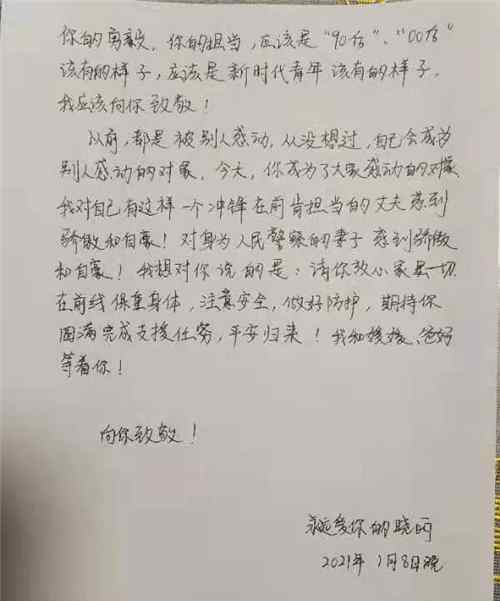 你的勇毅、你的担当,应该是“90后”、“00后”
该有的样子,应该是新时代青年该有的样子,
我应该向你致敬!
以前,都是被别人感动,从没想过,自己会成为
别人感动的对象,今天,你成为了大家感动的对象
我对自己有这样一个冲锋在前肯担当的丈夫感到
骄傲和自豪!对身为人民警察的妻子感到骄傲
和自豪!我想对你说的是:请你放心家里一切
在前线保重身体,注意安全,做好防护,期待你
圆满完成支援任务,平安归来!我和媛媛、爸妈
等着你!
向你致敬!
永远爱你的晓
2021年1月8日晚